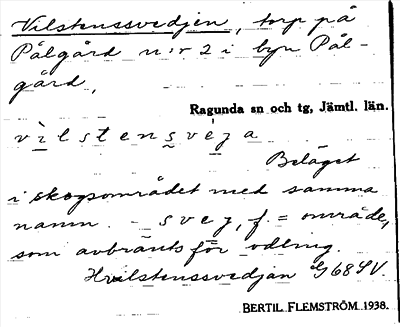 Vilstenssvedjen, torp på
Pålgård n:r 2 i byn Pål-
gård,
Ragunda sn och tg, Jämtl. län.
vilstensveja
Beläget
i skogsområdet med samma
namn. - svej, f. = område,
som avbränts för odling.
Hvilstenssvedjan G68SV.
BERTIL FLEMSTRÖM 1938.